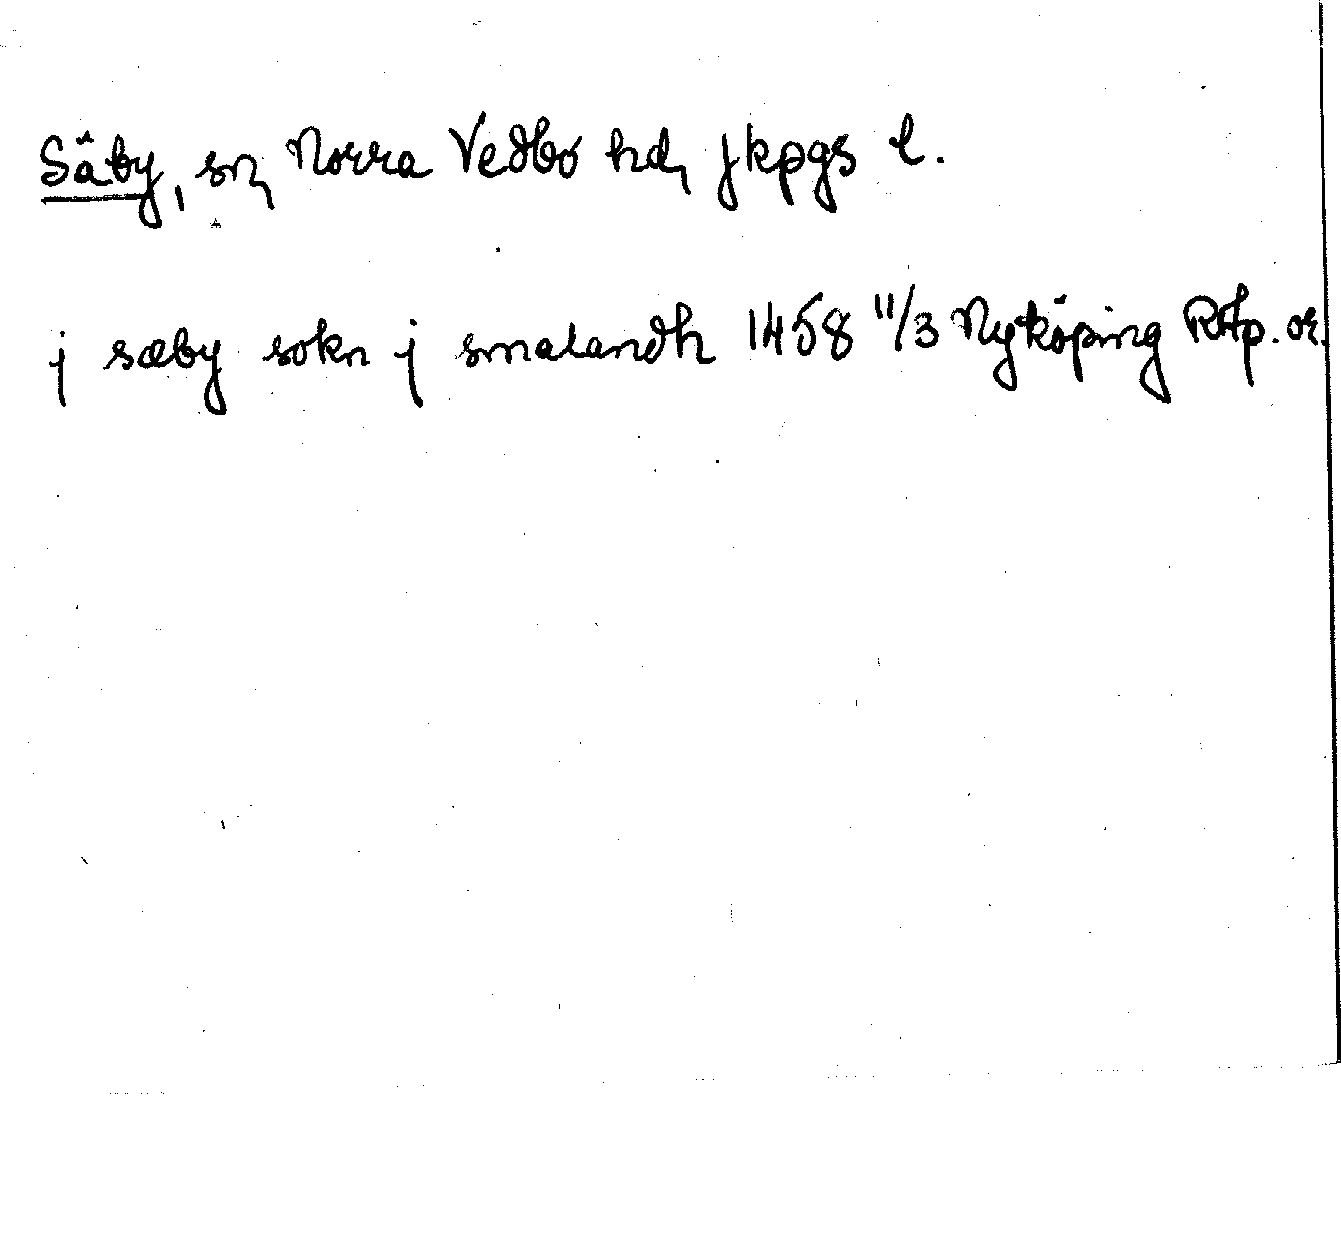 Säby, sn, Norra Vedbo hd, Jkpgs l.
j sæby sokn j smalandh 1458 11/3 Nyköping RAp. or.